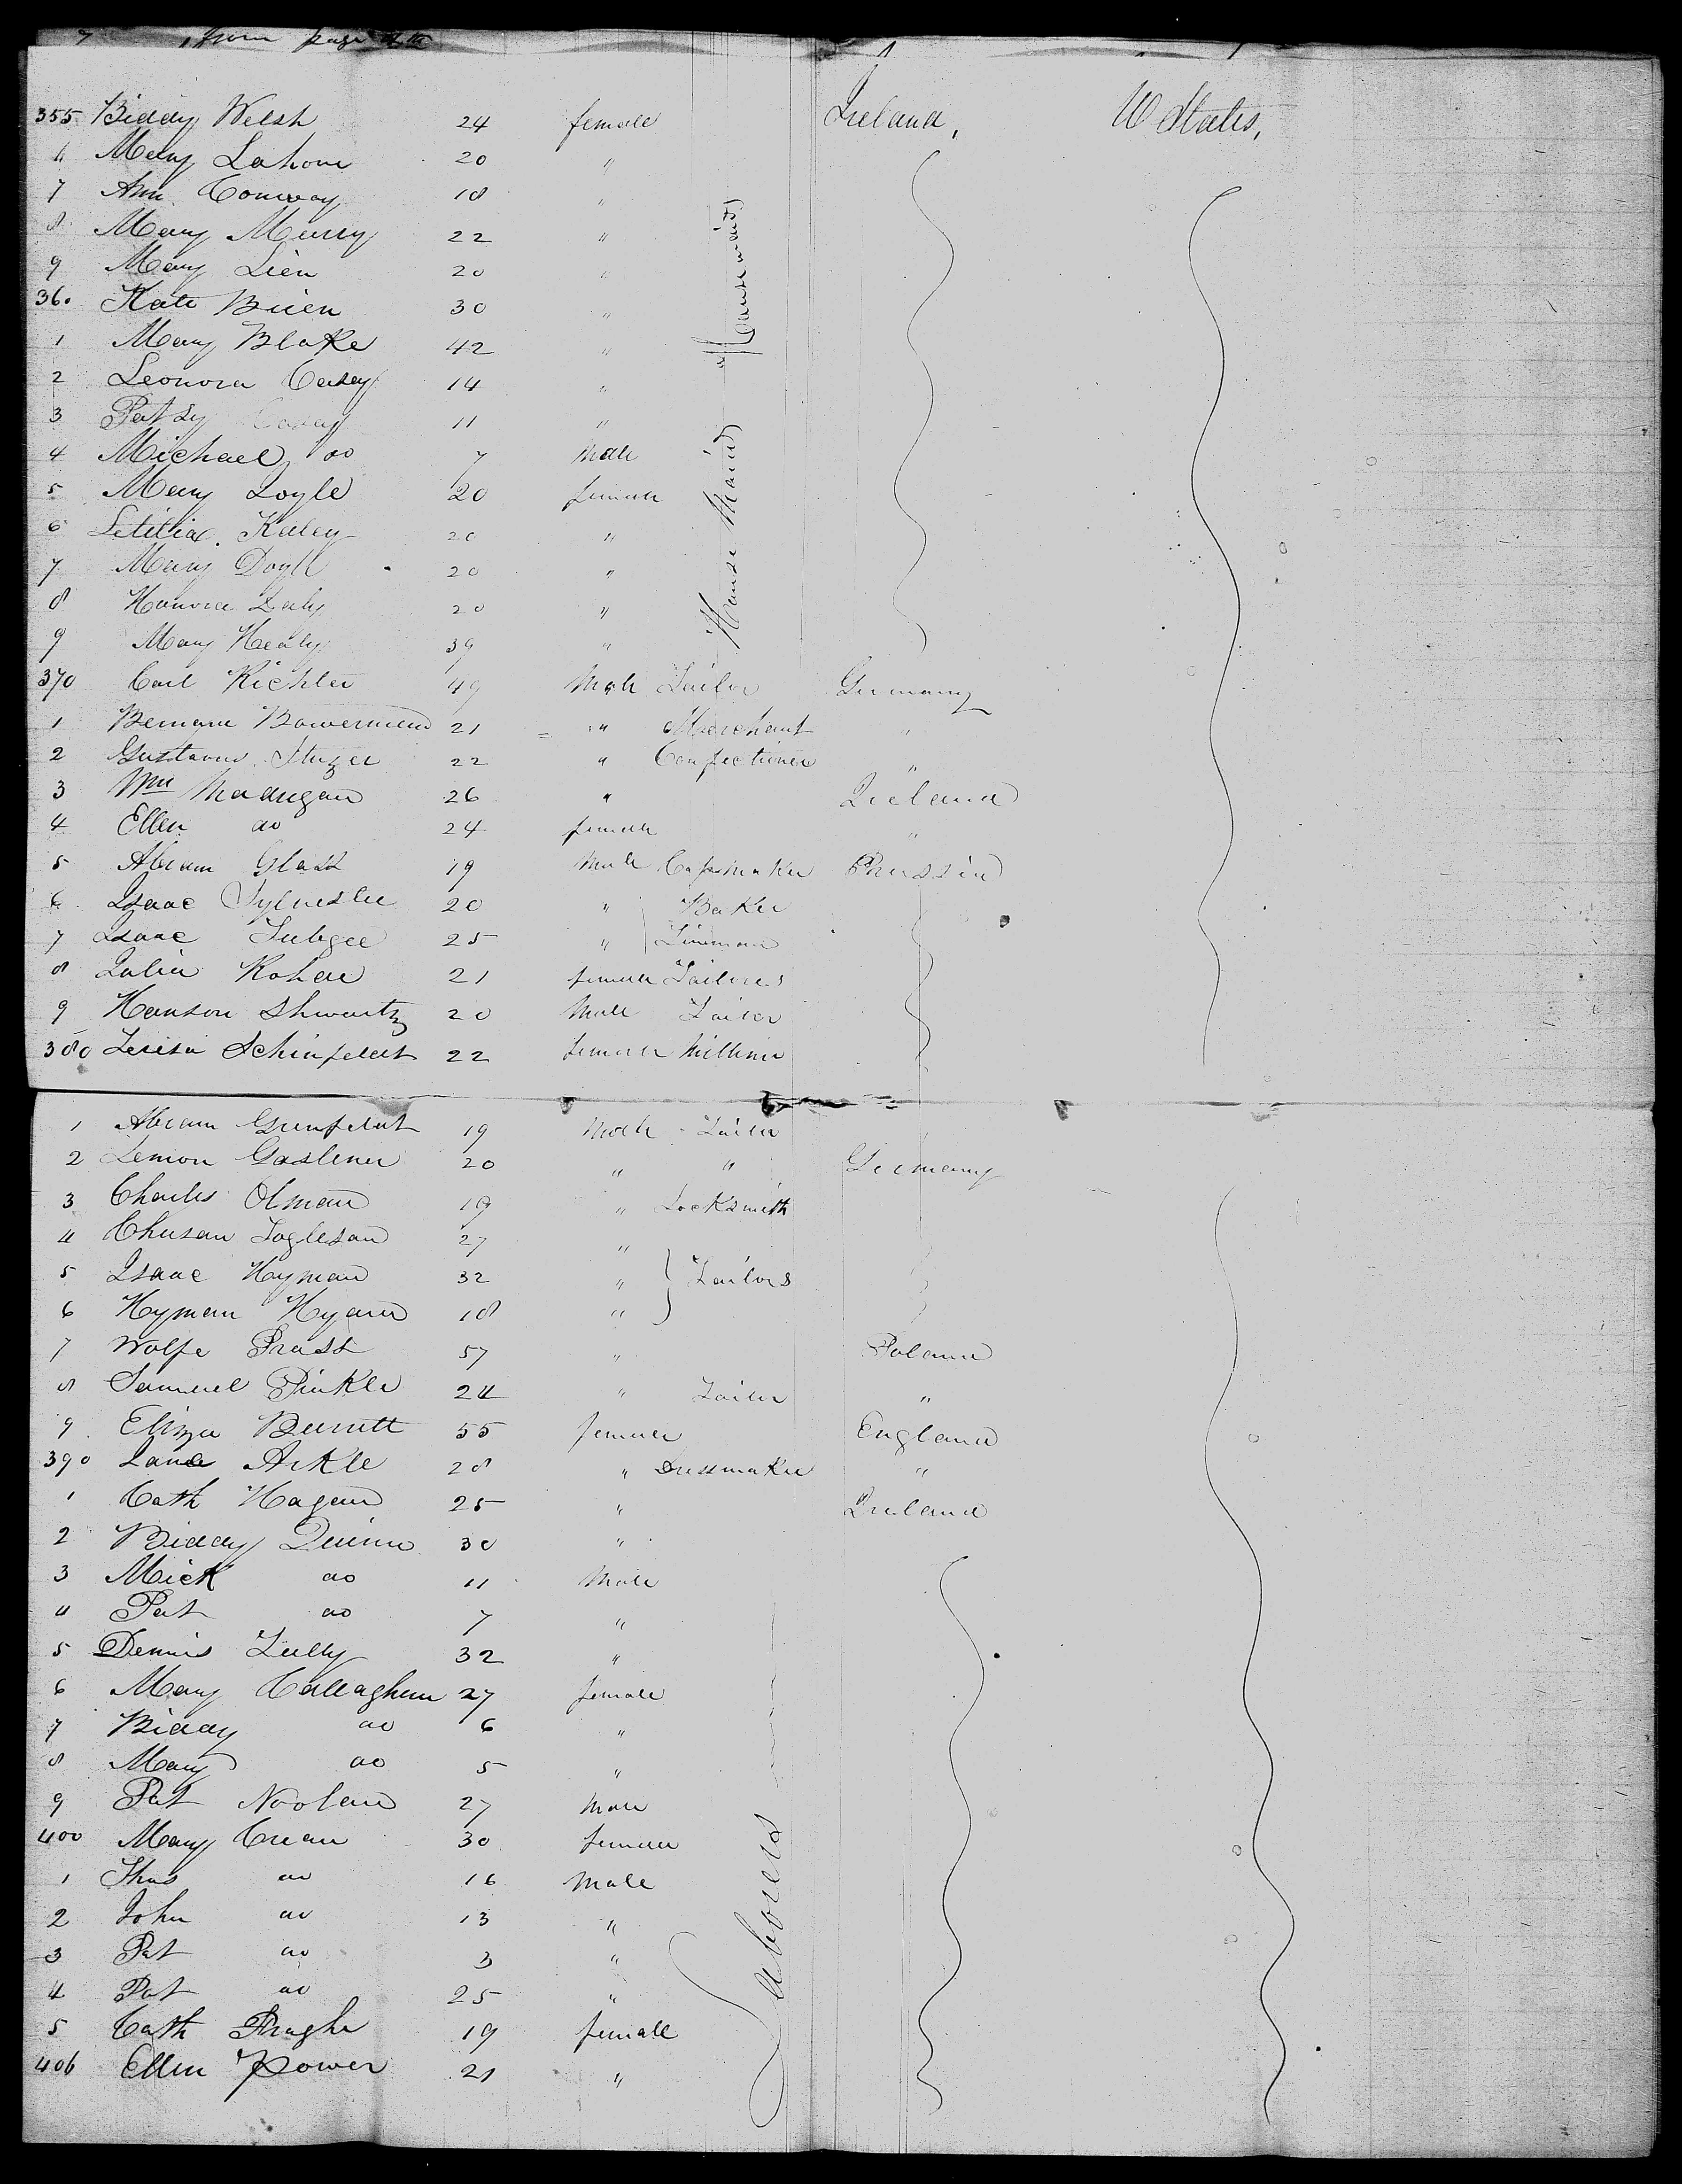 from page
355 Biddy Welsh 24 female Ireland, U States,
6 Mary Lahom 20 "
7 Ann Conway 18 "
8 Mary Murry 22 "
9 Mary Lien 20 "
360 Kate Brien 30 "
1 Mary Blake 42 " "Housemaids
2 Leonora Casey 14 "
3 Patsy Casey 11 "
4 Michael do 7 Male
5 Mary Loyle 20 female
6 Letitia Kelley 20 "
7 Mary Doyle 20 "
8 Honora Daly 20 " House Maids
9 Mary Healy 39 "
370 Carl Richter 49 Male Tailor Germany
1 Bernard 21 " Merchant "
2 Gustavus Stuzer 22 " Confectioner "
3 Wm Madigan 26 " Ireland
4 Ellen do 24 female "
5 Abram Glass 19 Male Capmaker Prussia
6 Isaac Sylvester 20 " Baker
7 Isaac 25 "
8 Julia 21 female Tailoress
9 Hanson Shwartz 20 Male Tailor
380 Schinfeldt 22 female Milliner
1 Abram Grunfeldt 19 Male Tailor
2 Lemon Gastener 20 " " Germany
3 Charles Olman 19 " Locksmith
4 27 "
5 Isaac Hyman 32 " } Tailors
6 Hyman Hyam 18 "
7 Wolfe Prass 57 " Poland
8 Samuel Pinkle 24 " Tailor "
9 Eliza Burnett 55 female England
390 Jane Arkle 28 " Dressmaker "
1 Cath Hagan 25 " Ireland
2 Biddy Quinn 30 "
3 Mick do 11 Male
4 Pat do 7 "
5 Dennis Tully 32 "
6 Mary Callaghan 27 female
7 Biddy do 6 "
8 Mary do 5 "
9 Pat Noolan 27 Male
400 Mary Crean 30 female
1 Thos do 16 Male
2 John do 13 "
3 Pat do 3 "
4 Pat do 25 " Laborers
5 Cath 19 female
406 Ellen Power 21 "